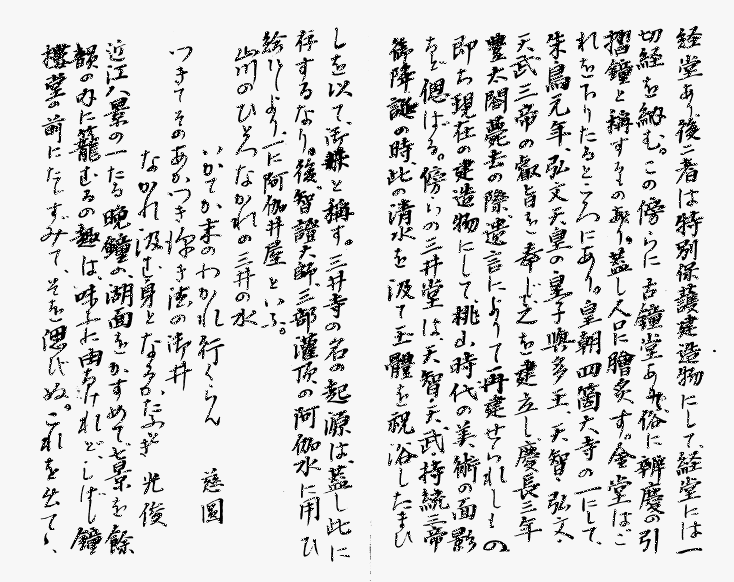 経堂あり、後二者は特別保護建造物にして、経堂には一
切経を納む。この傍らに古鐘堂あり、俗に辨慶の引
摺鐘と稱するものあり。蓋し人口に膾炙す。金堂はこ
れをりたるところにあり。皇朝四箇大寺の一にして、
朱鳥元年、弘文天皇の皇子與多王、天智・弘文・
天武三帝の叡旨を奉じ之を建立し、慶長三年
豊太閤薨去の際、遺言によりて再建せられしもの、
即ち現在の建造物にして、桃山時代の美術の面影
を偲ばる。傍らの三井堂は、天智・天武・持統三帝
御降誕の時、此の清水を汲て玉體を祝浴したまひ
しを以て、御井と稱す。三井寺の名の起源は、蓋し此に
存するなり。後、智證大師、三部灌頂の阿伽水に用ひ
給ひしより、一に阿伽井屋といふ。
山川のひとつながれの三井の水
いかでか末のわかれ行くらん 慈圓
つきてそのあかつき深き法の御井
ながれ汲む身となるがたふとき 光俊
近江八景の一たる晩鐘の、湖面をかすめて、七景を餘
韻の内に籠むるの趣は、味ふに由なけれど、しばし鐘
樓堂の前にたたずみて、そを偲びぬ。これを出て、